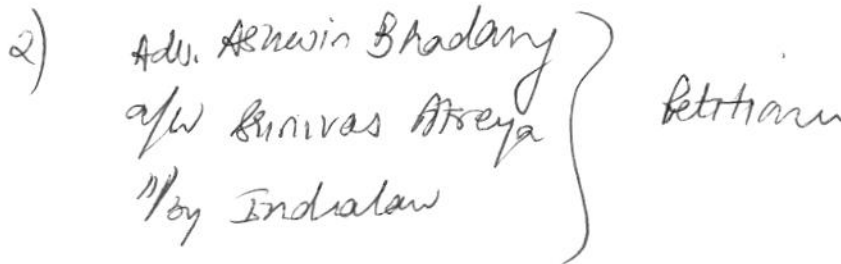 2) Adv. Ashwin Bhadang
a/w Srinivas Atreya
i/by Indialaw
Petitioner